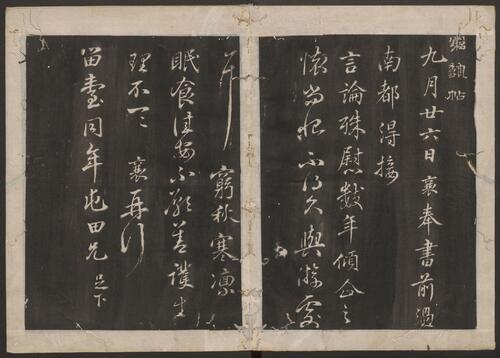 九月廿六日襄奉書前過
南都得接
言論殊慰數年傾企之
懷尚恨不得久與游處
窮秋寒凜
眠食佳安不善護生
理不一一 襄再
留臺同年屯田兄足下